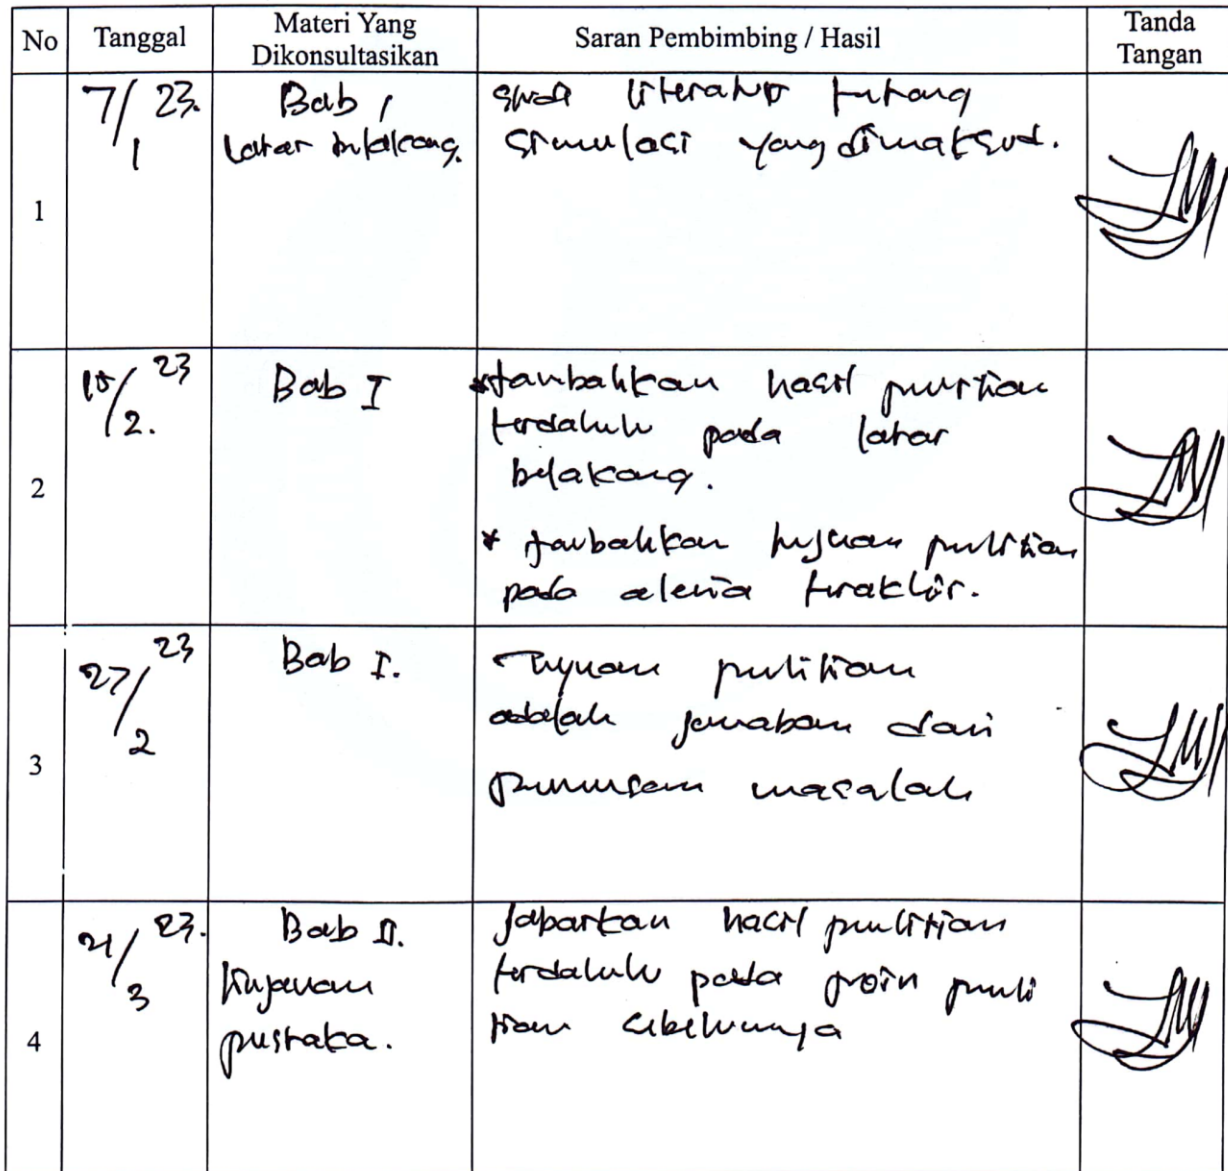 No Tanggal Materi Yang Dikonsultasikan Saran Pembimbing / Hasil Tanda Tangan
1
7/1 23.
Bab I
latar belakang.
studi literatur tentang
simulasi yang dimaksud.
2
/2. 23
Bab I
* tambahkan hasil penelitian
terdahulu pada latar
belakang.
* tambahkan tujuan penelitian
pada alenia terakhir.
3
27/2 23
Bab I.
Tujuan penelitian
adalah jawaban dari
perumusan masalah
4
21/3 23.
Bab II.
tinjauan
pustaka.
Jabarkan hasil penelitian
terdahulu pada poin peneli
tian sebelumnya